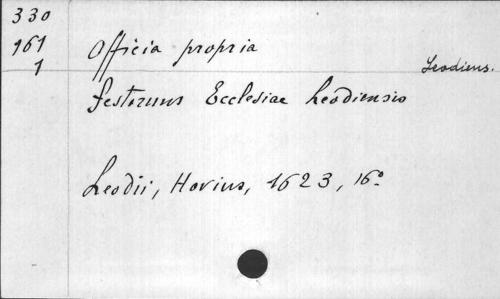 330
161
1
Officia propria
Leodiens.
festorum Ecclesiae Leodiensis
Leodii, Hovius, 1623, 16o